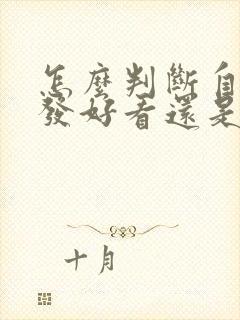 怎麼判斷自
發好看還是
十月